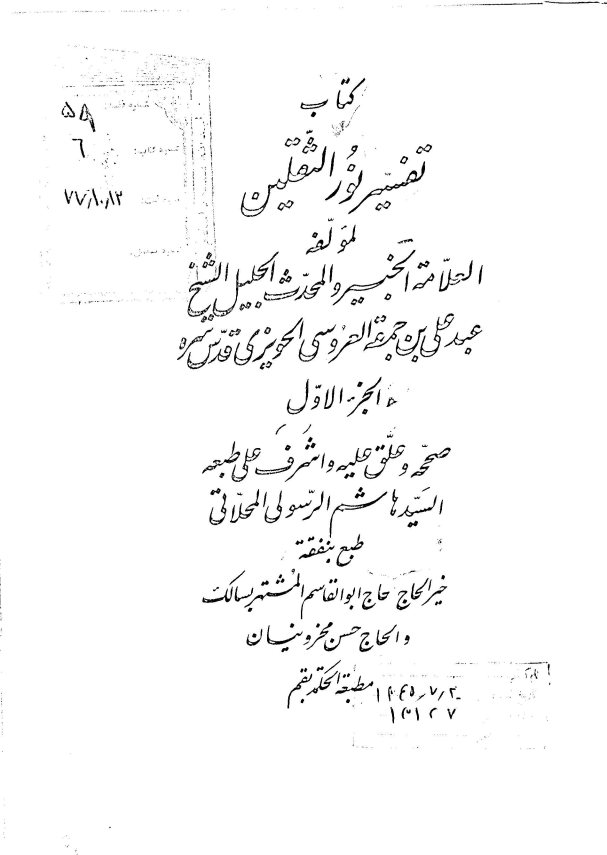 کتاب
تفسیر نور الثّقلین
لمؤلّفه
العلّامة الخبیر والمحدّث الجلیل الشیخ
عبد علی بن جمعة العروسی الحویزی قدّس سره
الجزء الاوّل
صحّحه وعلّق علیه واشرف علی طبعه
السیّد هاشم الرّسولی المحلّاتی
طبع بنفقة
خیر الحاج حاج ابوالقاسم المشتهر بسالک
والحاج حسن مخزونیان
مطبعة الحکمة بقم
۵۹
٦
۷۷/۱۰/۱۲